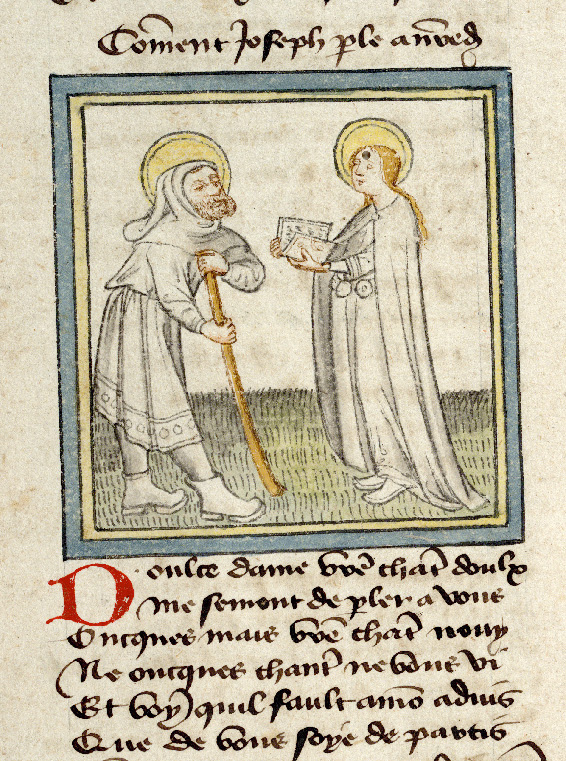 Co̅ment Joseph p̱le a nr̅e d̅
Doulce dame vr̅e chãt doulx
Me semont de p̱ler a vous
Oncques mais vr̅e chãt n'ouy
Ne oncques chant̃ ne vous vi
Et voy quil fault a mo̅ aduis
Que de vous soye departis